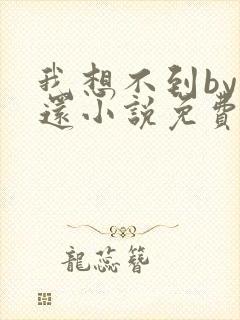 我想不到by
還小説免費
龍蕊簪